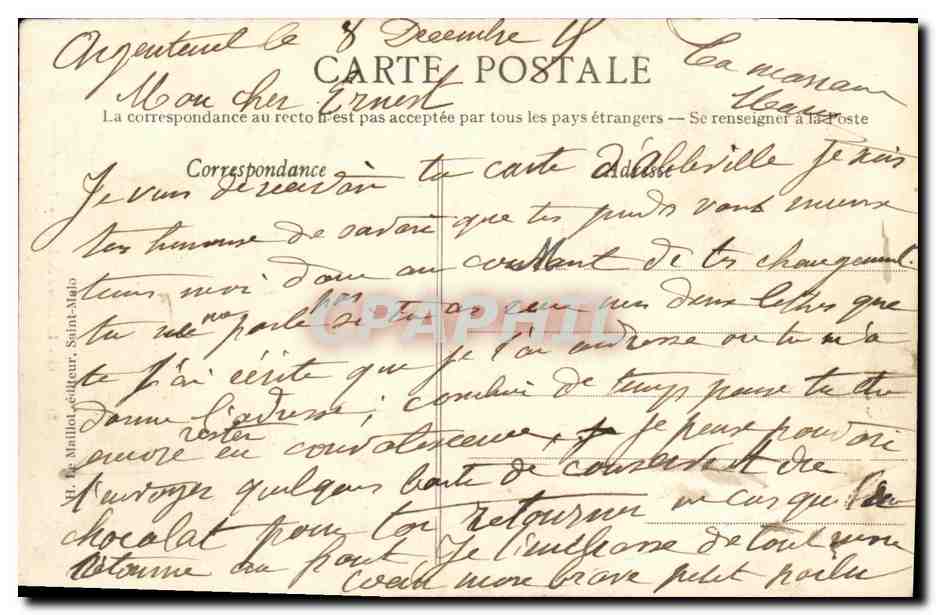 Argenteuil le 8 Decembre 15
CARTE POSTALE
Ta maman
Mon cher Ernest
La correspondance au recto n'est pas acceptée par tous les pays étrangers — Se renseigner à la Poste
Correspondance
Adresse
Je viens de recevoir ta carte d'Abbeville Je suis
tres heureuse de savoir que tes pieds vont mieux
tiens moi donc au courant de tes changement.
tu ne parle pas si tu as reçu mes deux lettres que
te j'ai écrite que je t'ai adresse ou tu m'a
donne l'adresse; combien de temps pense tu
rester
encore en convalescence, je pense pouvoir
t'envoyer quelques boite de conserve et de
chocolat pour toi retourner en cas que
retourne au front Je t'embrasse de tout mon
coeur mon brave petit poilu
H. Le Maillot, éditeur, Saint-Malo
CPAPHIL